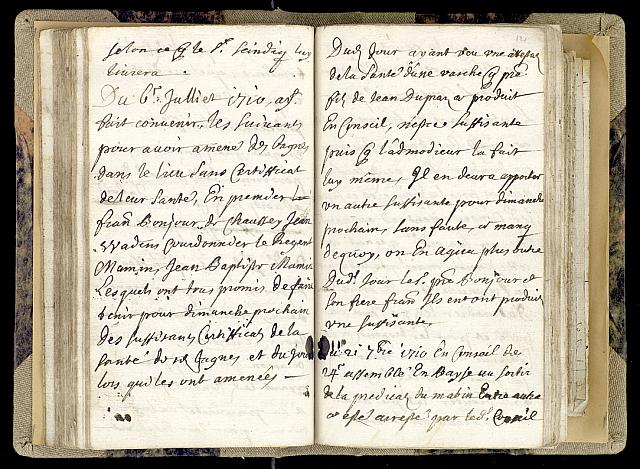 selon ce q le Sr. Scindiq luy
livrera .
Du 6e. Julliet 1710, as
fait convenir, les suivants
pour avoir amené des vaches
dans le lieu sans Certifficat
de leur Santé, En premier
Bonjour de Chausse, Jean
Wadins Courdonnier le Regent
Mamin, Jean Baptiste Mamin
Lesquels ont tous promis de faire
tenir pour dimanche prochain
des suffisants Certifficat de la
santé de vaches et du Jour
lors qu'ils les ont amenées —
Dud. Jour ayant veu une attestaõn
de la Santé d'une vasche q
de Jean Dumas a produit
En Conseil, n'estre suffisante
puis q l'admodieur la fait
luy même, Il en devra apporter
un autre suffisante pour dimanche
prochain, sans faute, a manq
dequoy, on En agira plus outre
Dud. Jour Bonjour et
son frere Ils en ont produit
une suffisante.
Du 21 7bre 1710 En Conseil de
24 assemblé En au sortir
de la predica du matin Entre autre
a esté arresté par led. Conseil